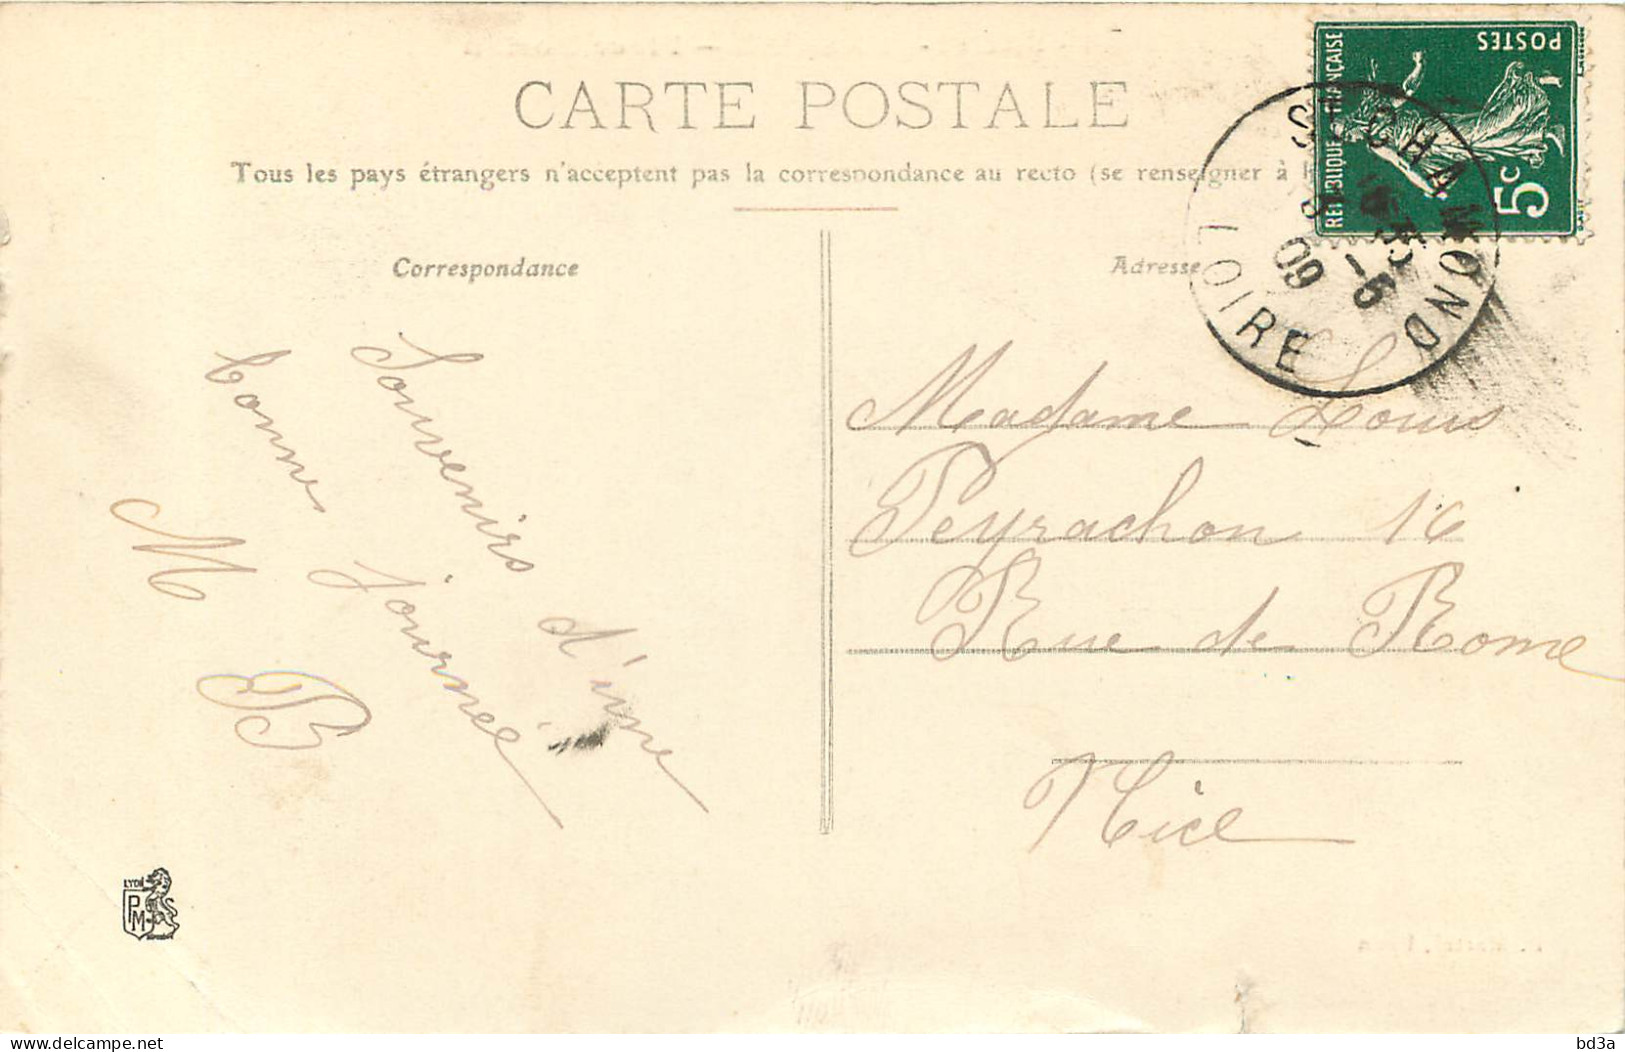 CARTE POSTALE
Tous les pays étrangers n'acceptent pas la correspondance au recto (se renseigner à
Correspondance
Adresse
RÉPUBLIQUE FRANÇAISE
POSTES
5c
ST CHAMOND
-5
09
LOIRE
Souvenirs d'une
bonne journée
M B
Madame Louis
Peyrachon 16
Rue de Rome
Nice
LYON
PM
bd3a